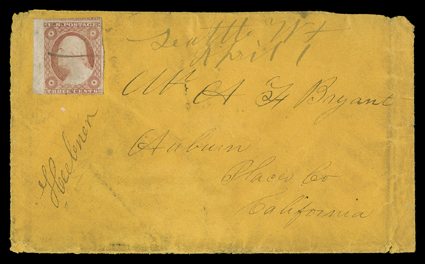 U.S. POSTAGE
THREE CENTS
Seattle WT
April 1
Mr A F Bryant
Auburn
Placer Co
California